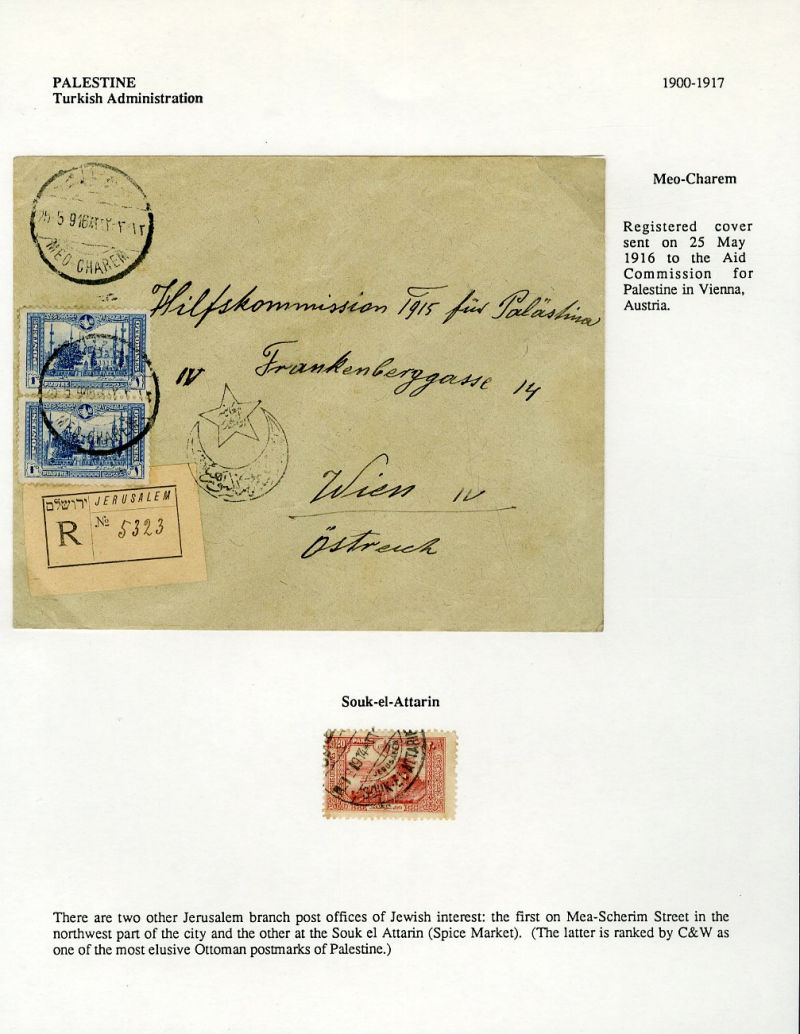 PALESTINE 1900-1917
Turkish Administration
Meo-Charem
Registered cover
sent on 25 May
1916 to the Aid
Commission for
Palestine in Vienna,
Austria.
5 916
MEO-CHAREM
Hilfskommission 1915 für Palästina
IV Frankenberggasse 14
Wien IV
Östreich
POSTES OTTOMANES
PIASTRE
MEO-CHAREM
PIASTRE
ירושלים JERUSALEM
R No 5323
Souk-el-Attarin
20 PARA
JERUSALEM
SOUK-EL-ATTARIN
There are two other Jerusalem branch post offices of Jewish interest: the first on Mea-Scherim Street in the
northwest part of the city and the other at the Souk el Attarin (Spice Market). (The latter is ranked by C&W as
one of the most elusive Ottoman postmarks of Palestine.)